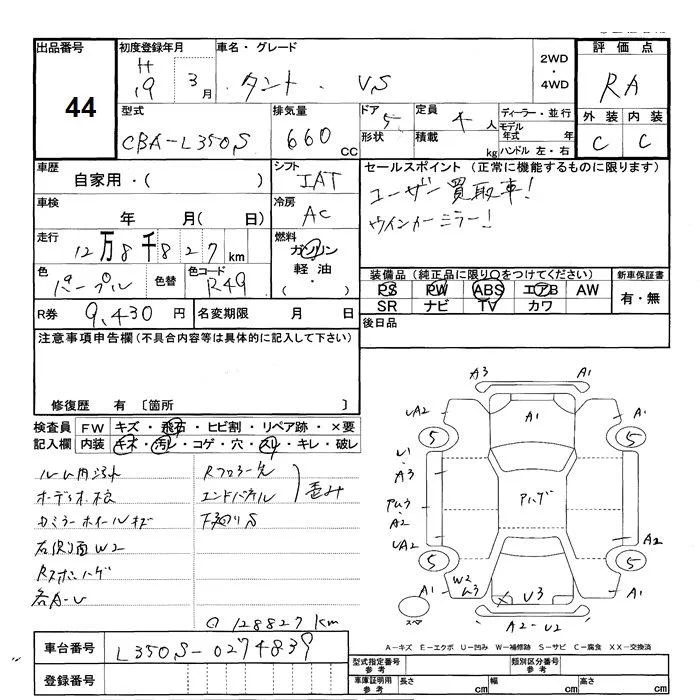 出品番号
44
初度登録年月
H 19 3月
車名・グレード
タント VS
2WD
・
4WD
評価点
RA
外装 内装
C C
型式
CBA-L350S
排気量
660 CC
ドア 5
形状
定員 4 人
積載 kg
ディーラー・並行
モデル年式 年
ハンドル 左・右
車歴
自家用・( )
シフト
IAT
セールスポイント (正常に機能するものに限ります)
ユーザー買取車!
ウインカーミラー!
車検
年 月( 日)
冷房
AC
走行
12万8千827km
燃料
ガソリン
軽油・
( )
色
パープル
色替
色コード
R49
装備品 (純正品に限り○をつけてください)
PS PW ABS エアB AW
SR ナビ TV カワ
新車保証書
有・無
R券 9,430 円
名変期限 月 日
後日品
注意事項申告欄(不具合内容等は具体的に記入して下さい)
修復歴 有 〔箇所 〕
検査員記入欄
FW キズ・飛石・ヒビ割・リペア跡・×要
内装 キズ・汚レ・コゲ・穴・スレ・キレ・破レ
ルーム内
オーディオ
ホイールキズ
右側面W2
各A-U
Rフロア
エンドパネル
歪み
下廻りS
128827km
A3 A1
UA2 A1 A1
5 5
A3
Pハゲ
A2
UA2 A2
5 5
A1 W2 U3 A1
A2-U2
A-キズ E-エクボ U-凹み W-補修跡 S-サビ C-腐食 XX-交換済
車台番号
L350S-0274839
登録番号
型式指定番号 参考
類別区分番号 参考
車庫証明用 参考
長さ cm 幅 cm 高さ cm